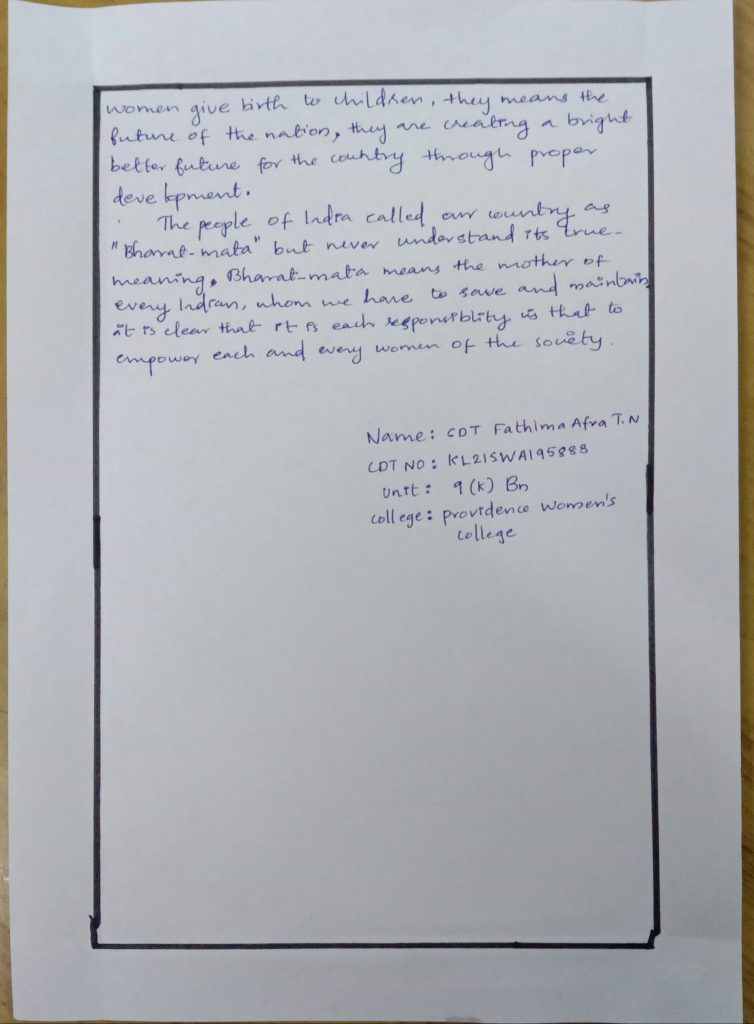 women give birth to children, they means the
future of the nation, they are creating a bright
better future for the country through proper
development.
The people of India called our country as
"Bharat-mata" but never understand its true-
meaning. Bharat-mata means the mother of
every Indian, whom we have to save and maintain,
it is clear that it is each responsiblity is that to
empower each and every women of the society.
Name: CDT Fathima Afra T.N
CDT NO: KL21SWA195888
Unit: 9 (K) Bn
college: providence women's
college